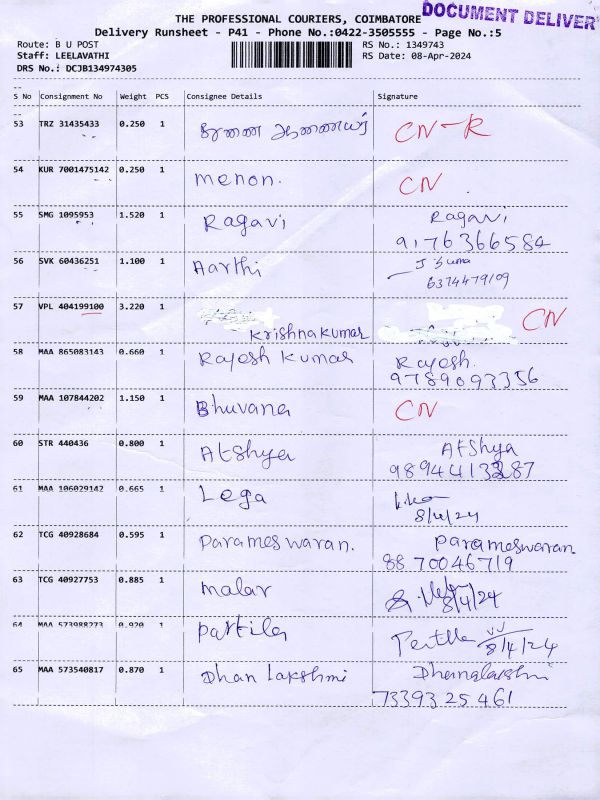 DOCUMENT DELIVER
THE PROFESSIONAL COURIERS, COIMBATORE
Delivery Runsheet - P41 - Phone No.:0422-3505555 - Page No.:5
Route: B U POST
RS No.: 1349743
Staff: LEELAVATHI
RS Date: 08-Apr-2024
DRS No.: DCJB134974305
S No Consignment No Weight PCS Consignee Details Signature
53 TRZ 31435433 0.250 1 CN-R
54 KUR 7001475142 0.250 1 menon. CN
55 SMG 1095953 1.520 1 Ragavi Ragavi
9176366584
56 SVK 60436251 1.100 1 Aarthi J Suma
6374479109
57 VPL 404199100 3.220 1 CN
Krishnakumar
58 MAA 865083143 0.660 1 Rajesh Kumar Rajesh.
9789093356
59 MAA 107844202 1.150 1 Bhuvana CN
60 STR 440436 0.800 1 Atshya Atshya
61 MAA 106029142 0.665 1 Lega
8/4/24
62 TCG 40928684 0.595 1 Parameswaran. Parameswaran
8870046719
63 TCG 40927753 0.885 1 malar
8/4/24
64 MAA 573988273 0.920 1
8/4/24
65 MAA 573540817 0.870 1 Dhan Lakshmi
7339325461